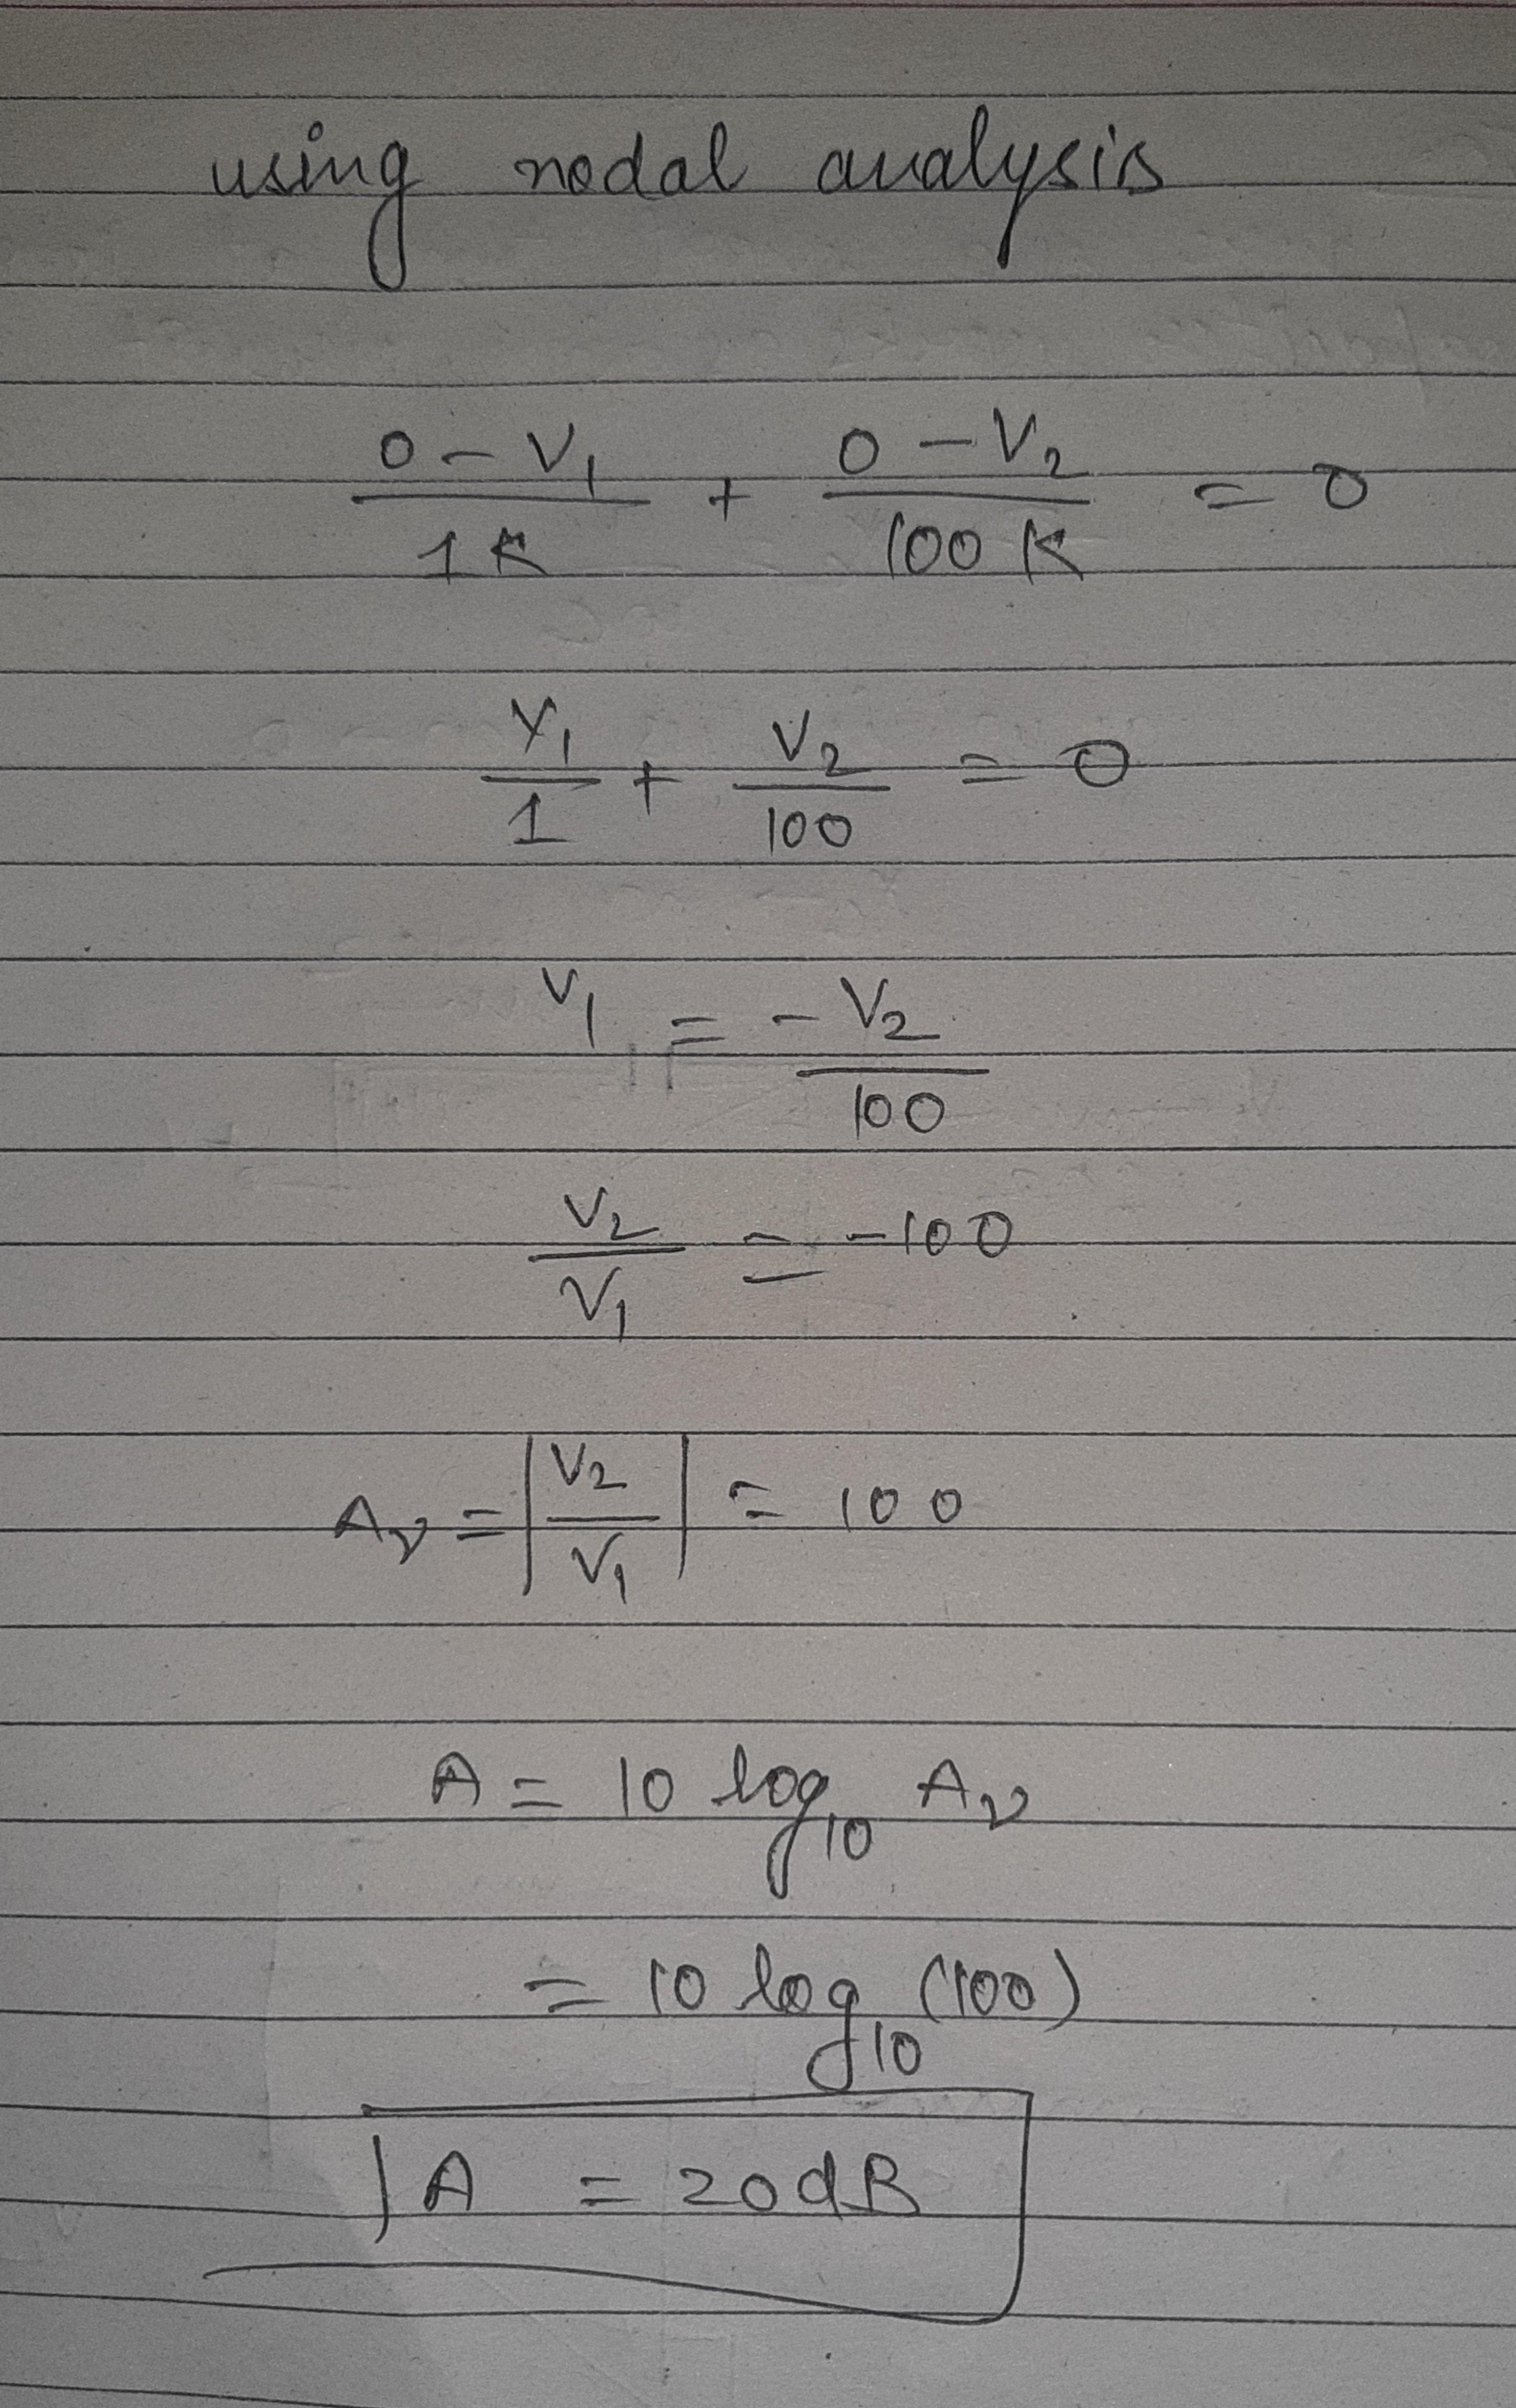 using nodal analysis
0 - V₁ / 1K + 0 - V₂ / 100 K = 0
V₁ / 1 + V₂ / 100 = 0
V₁ = - V₂ / 100
V₂ / V₁ = -100
Aᵥ = | V₂ / V₁ | = 100
A = 10 log₁₀ Aᵥ
= 10 log₁₀ (100)
A = 20dB